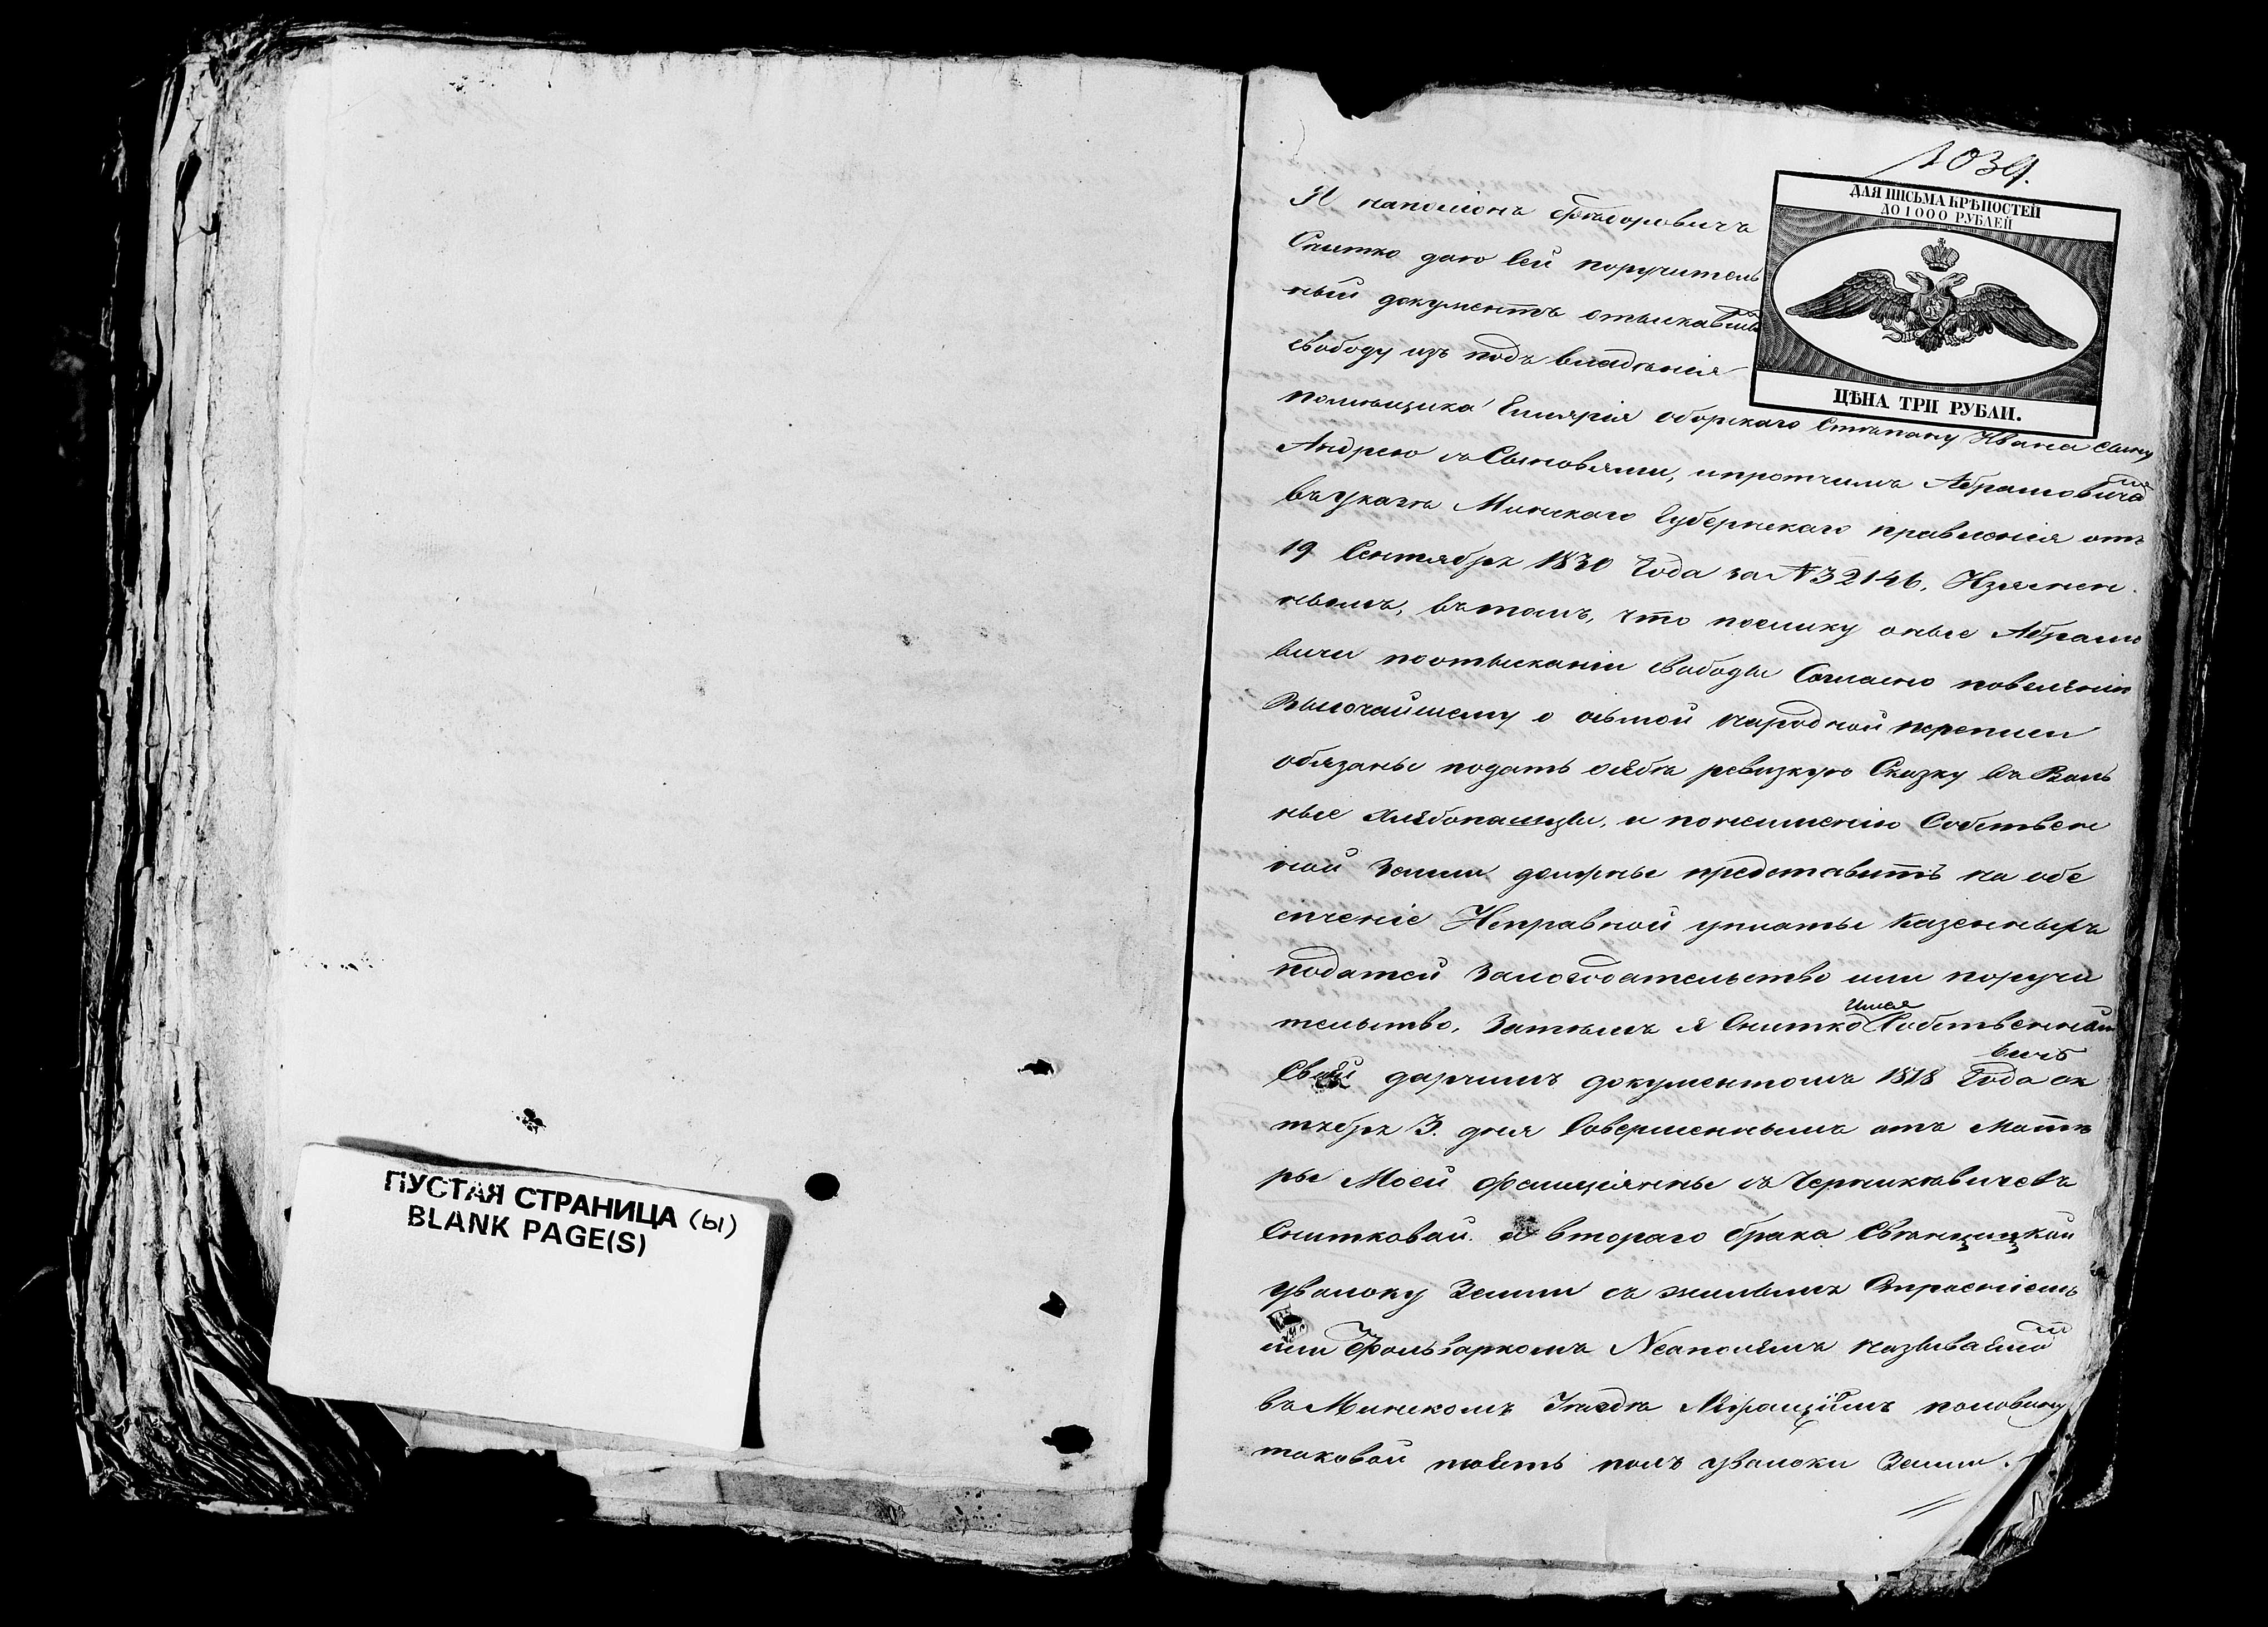 ПУСТАЯ СТРАНИЦА (ы)
BLANK PAGE(S)
1039.
ДЛЯ ПИСЬМА КРѢПОСТЕЙ
ДО 1000 РУБЛЕЙ
ЦѢНА ТРИ РУБЛИ.
Я наполіонъ Григоровичъ
Снитко даю сей поручитель
ный документъ отыскавшимъ
свободу изъ подъ владѣнія
помѣщика оборскаго Степану Ивана сыну
Андрею съ Сыновьями, и протчимъ Абрамовичамъ
въ указѣ Минскаго Губернскаго правленія отъ
19 Сентября 1830 Года за N 32146. Изъяснен
нымъ, въ томъ, что поелику оные Абрамо
вичи по отысканіи свободы Согласно повелѣнію
Высочайшему о осьмой народной переписи
обязаны подать о себѣ ревизкую Сказку въ Воль
ные хлѣбопашцы, и по неимѣнію Собствен
ной Земли должны представить на обе
спеченіе Исправной уплаты казенныхъ
податей Залогодательство или поручи
тельство, Затѣмъ я Снитко имея Собственный
Свой дарчимъ документомъ 1818 Года ок
тября 3. дня Совершеннымъ отъ Матѣ
ры Моей фелиціянны съ
Снитковой. а втораго брака Свѣнцицкой
уволоку Земли съ жилымъ Строеніемъ
или Фольваркомъ Неаполемъ называемой
въ Минскомъ Уѣздѣ половину
таковой тоесть полъ уволоки Земли.